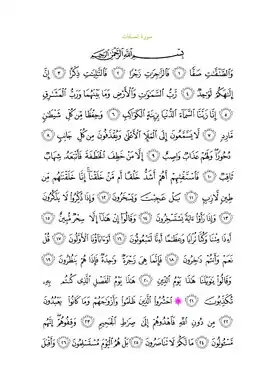 سورة الصافات
بسم الله الرحمن الرحيم
وَالصَّافَّاتِ صَفًّا ١ فَالزَّاجِرَاتِ زَجْرًا ٢ فَالتَّالِيَاتِ ذِكْرًا ٣ إِنَّ
إِلَٰهَكُمْ لَوَاحِدٌ ٤ رَّبُّ السَّمَاوَاتِ وَالْأَرْضِ وَمَا بَيْنَهُمَا وَرَبُّ الْمَشَارِقِ
٥ إِنَّا زَيَّنَّا السَّمَاءَ الدُّنْيَا بِزِينَةٍ الْكَوَاكِبِ ٦ وَحِفْظًا مِّن كُلِّ شَيْطَانٍ
مَّارِدٍ ٧ لَّا يَسَّمَّعُونَ إِلَى الْمَلَإِ الْأَعْلَىٰ وَيُقْذَفُونَ مِن كُلِّ جَانِبٍ ٨
دُحُورًا وَلَهُمْ عَذَابٌ وَاصِبٌ ٩ إِلَّا مَنْ خَطِفَ الْخَطْفَةَ فَأَتْبَعَهُ شِهَابٌ
ثَاقِبٌ ١٠ فَاسْتَفْتِهِمْ أَهُمْ أَشَدُّ خَلْقًا أَم مَّنْ خَلَقْنَا إِنَّا خَلَقْنَاهُم مِّن
طِينٍ لَّازِبٍ ١١ بَلْ عَجِبْتَ وَيَسْخَرُونَ ١٢ وَإِذَا ذُكِّرُوا لَا يَذْكُرُونَ
١٣ وَإِذَا رَأَوْا آيَةً يَسْتَسْخِرُونَ ١٤ وَقَالُوا إِنْ هَٰذَا إِلَّا سِحْرٌ مُّبِينٌ ١٥
أَإِذَا مِتْنَا وَكُنَّا تُرَابًا وَعِظَامًا أَإِنَّا لَمَبْعُوثُونَ ١٦ أَوَآبَاؤُنَا الْأَوَّلُونَ ١٧ قُلْ
نَعَمْ وَأَنتُمْ دَاخِرُونَ ١٨ فَإِنَّمَا هِيَ زَجْرَةٌ وَاحِدَةٌ فَإِذَا هُمْ يَنظُرُونَ ١٩
وَقَالُوا يَا وَيْلَنَا هَٰذَا يَوْمُ الدِّينِ ٢٠ هَٰذَا يَوْمُ الْفَصْلِ الَّذِي كُنتُم بِهِ
تُكَذِّبُونَ ٢١ احْشُرُوا الَّذِينَ ظَلَمُوا وَأَزْوَاجَهُمْ وَمَا كَانُوا يَعْبُدُونَ
٢٢ مِن دُونِ اللَّهِ فَاهْدُوهُمْ إِلَىٰ صِرَاطِ الْجَحِيمِ ٢٣ وَقِفُوهُمْ إِنَّهُم
مَّسْئُولُونَ ٢٤ مَا لَكُمْ لَا تَنَاصَرُونَ ٢٥ بَلْ هُمُ الْيَوْمَ مُسْتَسْلِمُونَ ٢٦ وَأَقْبَلَ